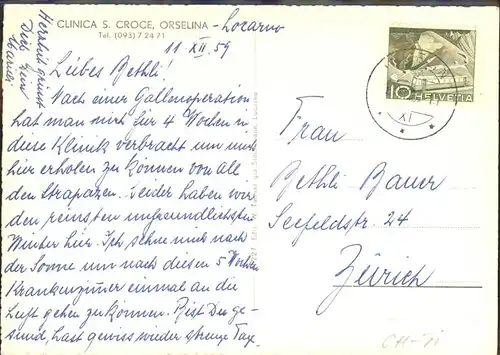 CLINICA S. CROCE, ORSELINA - Locarno
Tel. (093) 7 24 71
11. XII. 59
Liebes Bethli!
Nach einer Gallenoperation
hat man mich für 4 Wochen in
diese Klinik verbracht um mich
hier erholen zu können von all
den Strapazen. Leider haben wir
den reinsten unfreundlichsten
Winter hier. Ich sehne mich nach
der Sonne um nach diesen 5 Wochen
Krankenzimmer einmal an die
Luft gehen zu können. Bist Du ge-
sund, hast gewiss wieder strenge Tage.
Herzlich grüsst
Dich Dein
10 HELVETIA
XI
Frau
Bethli Bauer
Seefeldstr. 24
Zürich
CH-TI